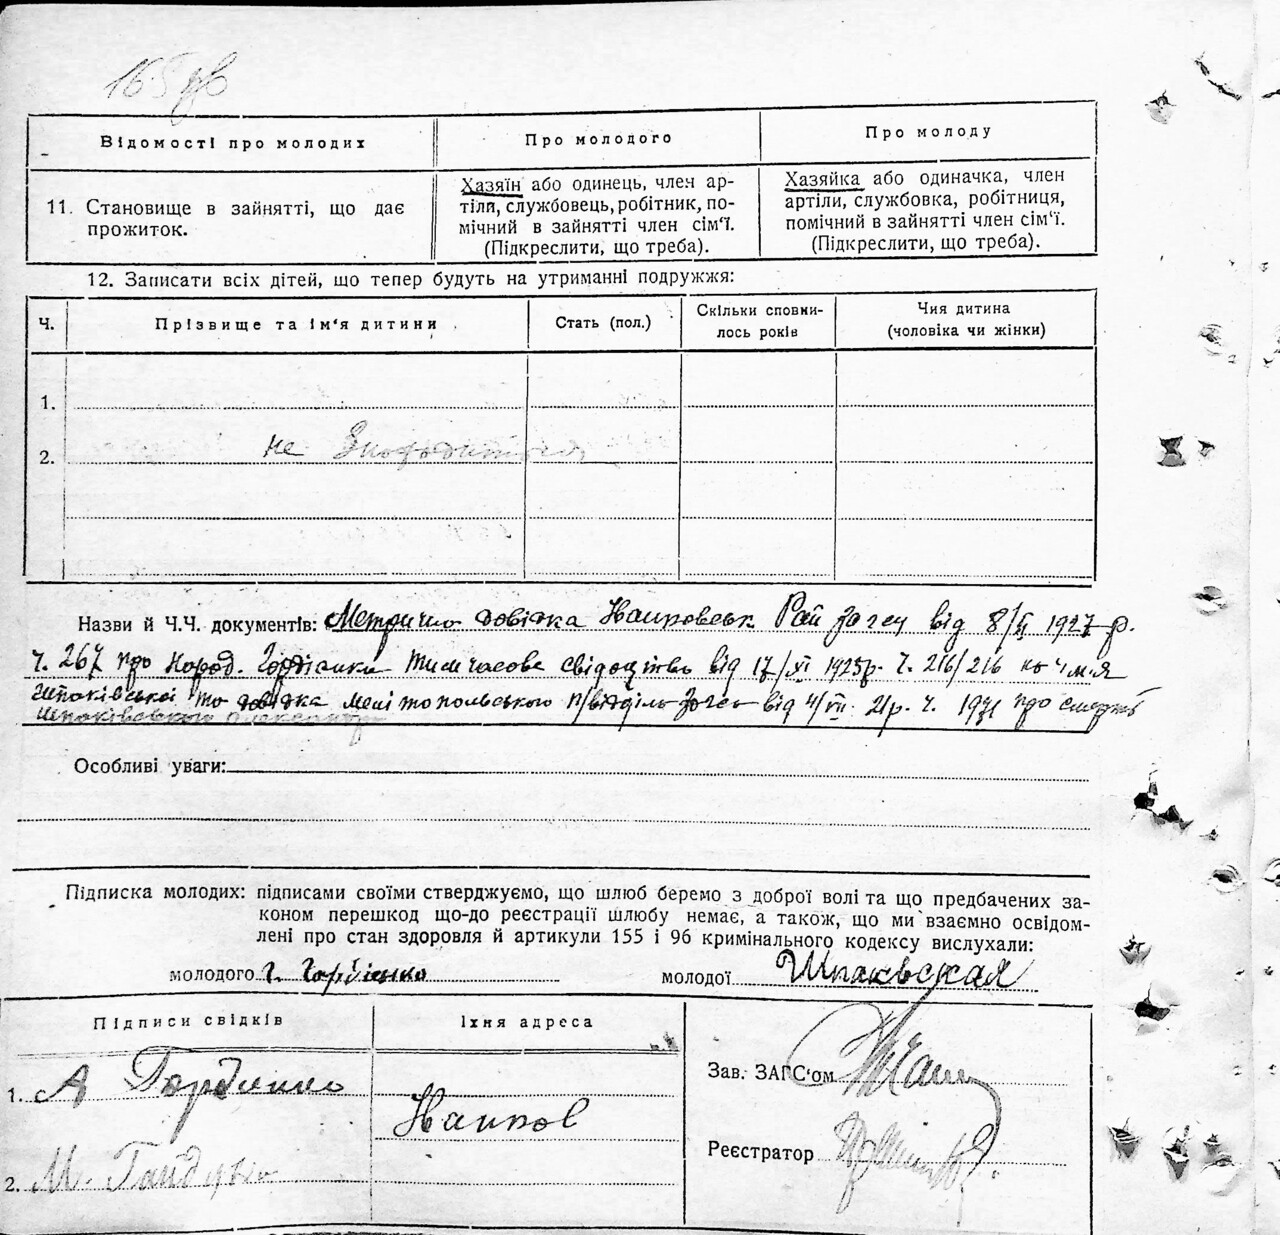 165 зв
Відомості про молодих
Про молодого
Про молоду
11. Становище в зайнятті, що дає
прожиток.
Хазяїн або одинець, член ар-
тіли, службовець, робітник, по-
мічний в зайнятті член сім'ї.
(Підкреслити, що треба).
Хазяйка або одиначка, член
артіли, службовка, робітниця,
помічний в зайнятті член сім'ї.
(Підкреслити, що треба).
12. Записати всіх дітей, що тепер будуть на утриманні подружжя:
Ч.
Прізвище та ім'я дитини
Стать (пол.)
Скільки сповни-
лось років
Чия дитина
(чоловіка чи жінки)
1.
2.
не
Назви й Ч.Ч. документів: довідка від 8/ 1927 р.
Ч. 267 про народ. Гордієнка Тимчасове свідоцтво від 17/XI 1925р. Ч. 216/216 на ім'я
Шпаківської та довідка Мелітопольського п/відділу Загсу від 4/VII 21р. Ч. 1971 про смерть
Шпаківського
Особливі уваги:
Підписка молодих: підписами своїми стверджуємо, що шлюб беремо з доброї волі та що предбачених за-
коном перешкод що-до реєстрації шлюбу немає, а також, що ми взаємно освідом-
лені про стан здоровля й артикули 155 і 96 кримінального кодексу вислухали:
молодого Г. Гордієнко
молодої Шпаквская
Підписи свідків
Їхня адреса
1. А Гордиенко
Наипов
2. М.
Зав. ЗАГС'ом
Реєстратор